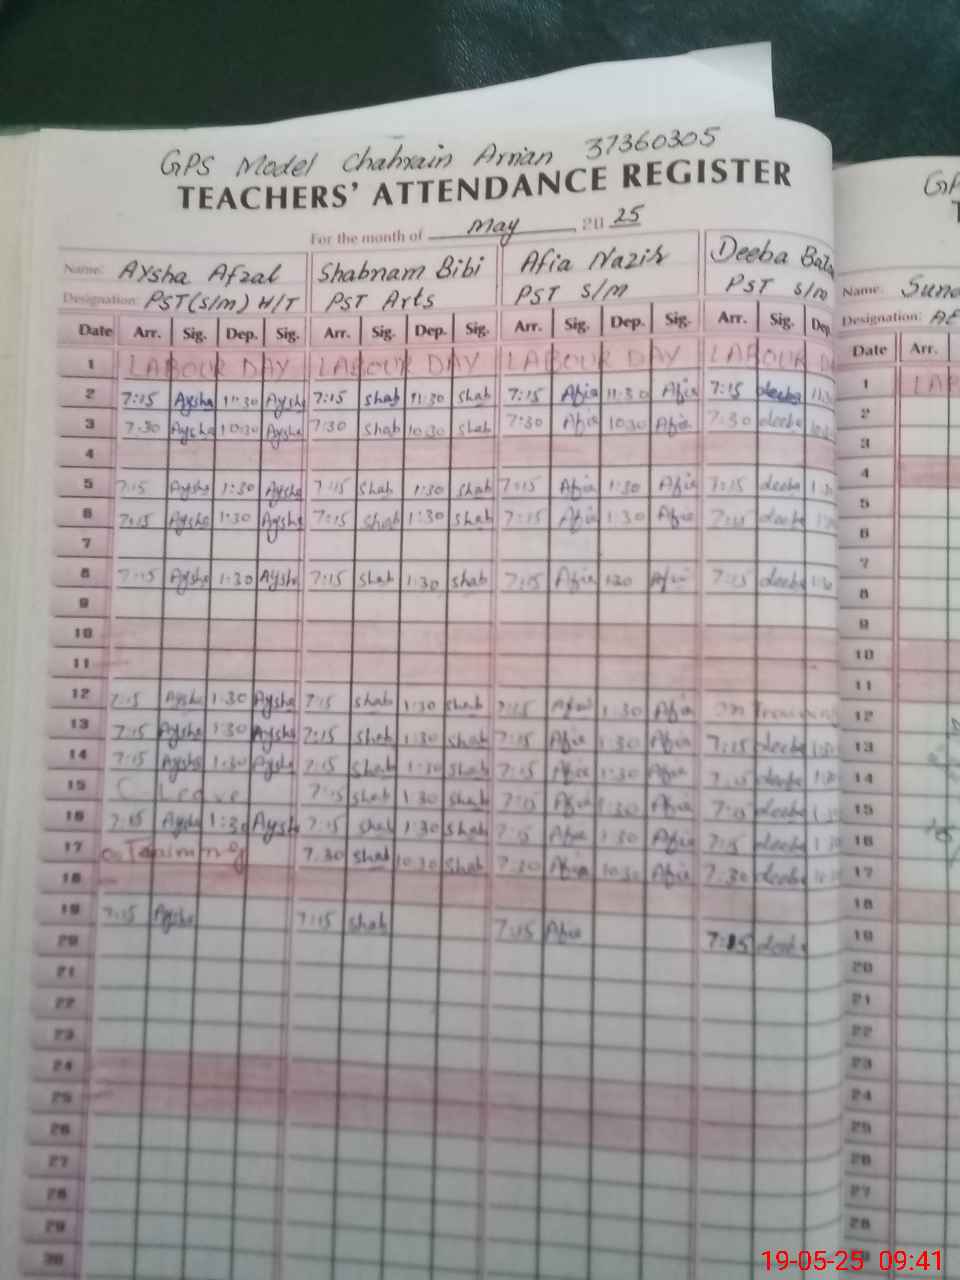 GPS Model Chahrain Arrian 37360305
TEACHERS' ATTENDANCE REGISTER
For the month of May 2025
Name: Aysha Afzal Shabnam Bibi Afia Nazir Deeba
Designation: PST (S/m) H/T PST Arts PST S/m PST S/m
Date Arr. Sig. Dep. Sig. Arr. Sig. Dep. Sig. Arr. Sig. Dep. Sig. Arr. Sig. Dep
1 LABOUR DAY LABOUR DAY LABOUR DAY LABOUR DA
2 7:15 Aysha 11:30 Aysha 7:15 Shab 11:30 Shab 7:15 Afia 11:30 Afia 7:15 deeba 11:30
3 7:30 Aysha 10:30 Aysha 7:30 Shab 10:30 Shab 7:30 Afia 10:30 Afia 7:30 deeba
4
5 7:15 Aysha 1:30 Aysha 7:15 Shab 1:30 Shab 7:15 Afia 1:30 Afia 7:15 deeba
6 7:15 Aysha 1:30 Aysha 7:15 Shab 1:30 Shab 7:15 Afia 1:30 Afia 7:15 deeba
7
8 7:15 Aysha 1:30 Aysha 7:15 Shab 1:30 Shab 7:15 Afia 130 Afia 7:15 deeba 1:30
9
10
11
12 7:15 Aysha 1:30 Aysha 7:15 Shab 1:30 Shab 7:15 Afia 1:30 Afia on Training
13 7:15 Aysha 1:30 Aysha 7:15 Shab 1:30 Shab 7:15 Afia 1:30 Afia 7:15 deeba
14 7:15 Aysha 1:30 Aysha 7:15 Shab 1:30 Shab 7:15 Afia 1:30 Afia 7:15 deeba
15 C Leave 7:15 Shab 1:30 Shab 7:15 Afia 1:30 Afia 7:15 deeba
16 7:15 Aysha 1:30 Aysha 7:15 Shab 1:30 Shab 7:15 Afia 1:30 Afia 7:15 deeba
17 7:30 Shab 10:30 Shab 7:30 Afia 10:30 Afia 7:30 deeba
18
19 7:15 Aysha 7:15 Shab 7:15 Afia 7:15 deeba
20
21
22
23
24
25
26
27
28
29
30
Name:
Designation:
Date Arr.
1 LAB
2
3
4
5
6
7
8
9
10
11
12
13
14
15
16
17
18
19
20
21
22
23
24
25
26
27
28
19-05-25 09:41